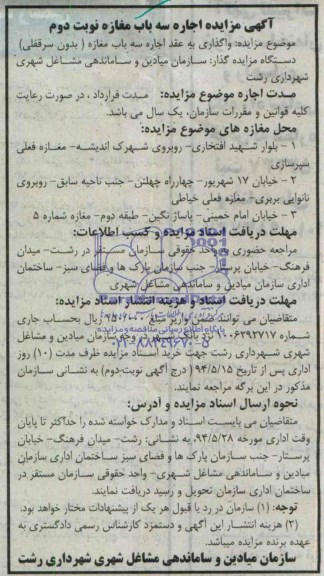 آگهی مزایده اجاره سه باب مغازه نوبت دوم
موضوع مزایده: واگذاری به عقد اجاره سه باب مغازه ( بدون سرقفلی)
دستگاه مزایده گذار: سازمان میادین و ساماندهی مشاغل شهری
شهرداری رشت
مدت اجاره موضوع مزایده: مدت قرارداد ، در صورت رعایت
کلیه قوانین و مقررات سازمان، یک سال می باشد.
محل مغازه های موضوع مزایده:
۱ - بلوار شهید افتخاری- روبروی شهرک اندیشه- مغازه فعلی
سپرسازی
۲ - خیابان ۱۷ شهریور- چهارراه چهلتن- جنب ناحیه سابق- روبروی
نانوایی بربری- مغازه فعلی خیاطی
۳ - خیابان امام خمینی- پاساژ نگین- طبقه دوم- مغازه شماره ۵
مهلت دریافت اسناد مزایده و کسب اطلاعات:
مراجعه حضوری واحد حقوقی سازمان مستقر در رشت- میدان
فرهنگ- خیابان پرستار- جنب سازمان پارک ها و فضای سبز- ساختمان
اداری سازمان میادین و ساماندهی مشاغل شهری
مهلت دریافت اسناد و هزینه انتشار اسناد مزایده:
متقاضیان می توانند ضمن واریز مبلغ ریال بحساب جاری
شماره ۱۰۰۶۲۹۲۷۱۷ وجه سازمان میادین و مشاغل
شهری شهرداری رشت جهت خرید اسناد مزایده ظرف مدت (۱۰) روز
اداری پس از تاریخ ۹۴/۵/۱۵ ( درج آگهی نوبت دوم) به نشانی سازمان
مذکور در این برگه مراجعه نمایند.
نحوه ارسال اسناد مزایده و آدرس:
متقاضیان می بایست اسناد و مدارک خواسته شده را حداکثر تا پایان
وقت اداری مورخه ۹۴/۵/۲۸ به نشانی: رشت- میدان فرهنگ- خیابان
پرستار- جنب سازمان پارک ها و فضای سبز ساختمان اداری سازمان
میادین و ساماندهی مشاغل شهری- واحد حقوقی سازمان مستقر در
ساختمان اداری سازمان تحویل و رسید دریافت نمایند.
توجه: (۱) سازمان در رد یا قبول هر یک از پیشنهادات مختار خواهد بود.
(۲) هزینه انتشار این آگهی و دستمزد کارشناس رسمی دادگستری به
عهده برنده مزایده میباشد.
سازمان میادین و ساماندهی مشاغل شهری شهرداری رشت
پایگاه اطلاع رسانی مناقصه و مزایده